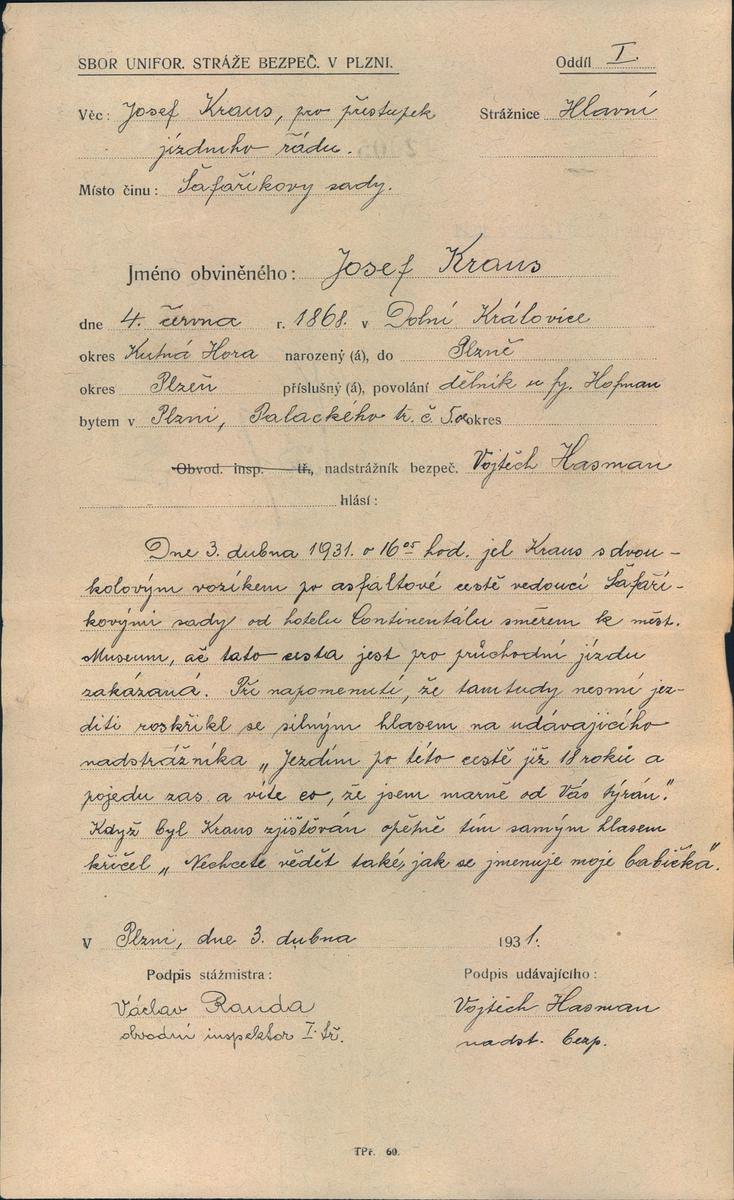 SBOR UNIFOR. STRÁŽE BEZPEČ. V PLZNI. Oddíl I.
Věc: Josef Kraus, pro přestupek Strážnice Hlavní
jízdního řádu.
Místo činu: Šafaříkovy sady.
Jméno obviněného: Josef Kraus
dne 4. června r. 1868. v Dolní Královice
okres Kutná Hora narozený (á), do Plzně
okres Plzeň příslušný (á), povolání dělník u fy. Hofman
bytem v Plzni, Palackého tř. č. 5. okres
Obvod. insp. tř., nadstrážník bezpeč. Vojtěch Hasman
hlásí:
Dne 3. dubna 1931. o 16⁰⁵ hod. jel Kraus s dvou-
kolovým vozíkem po asfaltové cestě vedoucí Šafaří-
kovými sady od hotelu Continentálu směrem k měst.
Museum, ač tato cesta jest pro průchodní jízdu
zakázaná. Při napomenutí, že tamtudy nesmí jez-
diti rozkřikl se silným hlasem na udávajícího
nadstrážníka „Jezdím po této cestě již 18 roků a
pojedu zas a víte co, že jsem marně od Vás týrán."
Když byl Kraus zjišťován opětně tím samým hlasem
křičel „Nechcete vědět také, jak se jmenuje moje babička".
V Plzni, dne 3. dubna 1931.
Podpis stážmistra: Podpis udávajícího:
Václav Randa Vojtěch Hasman
obvodní inspektor I. tř. nadst. bezp.
TPř. 60.